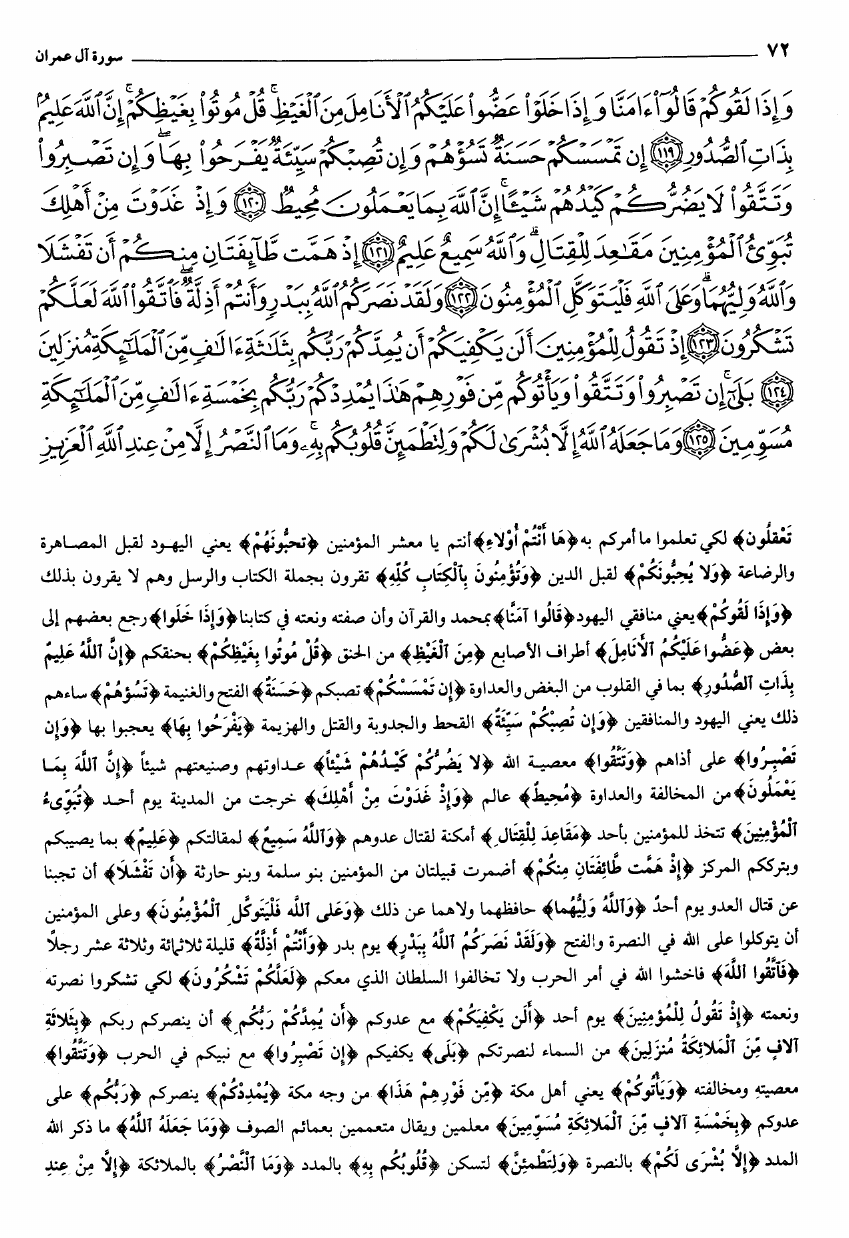 ٧٢ سورة آل عمران
وَإِذَا لَقُوكُمْ قَالُوٓا۟ ءَامَنَّا وَإِذَا خَلَوْا۟ عَضُّوا۟ عَلَيْكُمُ ٱلْأَنَامِلَ مِنَ ٱلْغَيْظِ ۚ قُلْ مُوتُوا۟ بِغَيْظِكُمْ ۗ إِنَّ ٱللَّهَ عَلِيمٌۢ
بِذَاتِ ٱلصُّدُورِ ﴿١١٩﴾ إِن تَمْسَسْكُمْ حَسَنَةٌ تَسُؤْهُمْ وَإِن تُصِبْكُمْ سَيِّئَةٌ يَفْرَحُوا۟ بِهَا ۖ وَإِن تَصْبِرُوا۟
وَتَتَّقُوا۟ لَا يَضُرُّكُمْ كَيْدُهُمْ شَيْـًٔا ۗ إِنَّ ٱللَّهَ بِمَا يَعْمَلُونَ مُحِيطٌ ﴿١٢٠﴾ وَإِذْ غَدَوْتَ مِنْ أَهْلِكَ
تُبَوِّئُ ٱلْمُؤْمِنِينَ مَقَـٰعِدَ لِلْقِتَالِ ۗ وَٱللَّهُ سَمِيعٌ عَلِيمٌ ﴿١٢١﴾ إِذْ هَمَّت طَّآئِفَتَانِ مِنكُمْ أَن تَفْشَلَا
وَٱللَّهُ وَلِيُّهُمَا ۗ وَعَلَى ٱللَّهِ فَلْيَتَوَكَّلِ ٱلْمُؤْمِنُونَ ﴿١٢٢﴾ وَلَقَدْ نَصَرَكُمُ ٱللَّهُ بِبَدْرٍ وَأَنتُمْ أَذِلَّةٌ ۖ فَٱتَّقُوا۟ ٱللَّهَ لَعَلَّكُمْ
تَشْكُرُونَ ﴿١٢٣﴾ إِذْ تَقُولُ لِلْمُؤْمِنِينَ أَلَن يَكْفِيَكُمْ أَن يُمِدَّكُمْ رَبُّكُم بِثَلَـٰثَةِ ءَالَـٰفٍ مِّنَ ٱلْمَلَـٰٓئِكَةِ مُنزَلِينَ
﴿١٢٤﴾ بَلَىٰٓ ۚ إِن تَصْبِرُوا۟ وَتَتَّقُوا۟ وَيَأْتُوكُم مِّن فَوْرِهِمْ هَـٰذَا يُمْدِدْكُمْ رَبُّكُم بِخَمْسَةِ ءَالَـٰفٍ مِّنَ ٱلْمَلَـٰٓئِكَةِ
مُسَوِّمِينَ ﴿١٢٥﴾ وَمَا جَعَلَهُ ٱللَّهُ إِلَّا بُشْرَىٰ لَكُمْ وَلِتَطْمَئِنَّ قُلُوبُكُم بِهِۦ ۗ وَمَا ٱلنَّصْرُ إِلَّا مِنْ عِندِ ٱللَّهِ ٱلْعَزِيزِ
تَعْقلُون﴾ لكي تعلموا ما أمركم به ﴿هَا أَنْتُمْ أُوْلاءِ﴾ أنتم يا معشر المؤمنين ﴿تحبُّونَهُمْ﴾ يعني اليهود لقبل المصاهرة
والرضاعة ﴿وَلا يُحِبُّونَكُمْ﴾ لقبل الدين ﴿وَتُؤْمِنُونَ بِٱلْكِتَابِ كُلِّهِ﴾ تقرون بجملة الكتاب والرسل وهم لا يقرون بذلك
﴿وَإِذَا لَقُوكُمْ﴾ يعني منافقي اليهود ﴿قَالُوا آمَنَّا﴾ بمحمد والقرآن وأن صفته ونعته في كتابنا ﴿وَإِذَا خَلَوا﴾ رجع بعضهم إلى
بعض ﴿عَضُّوا عَلَيْكُمُ ٱلأَنَامِلَ﴾ أطراف الأصابع ﴿مِنَ ٱلْغَيْظِ﴾ من الحنق ﴿قُلْ مُوتُوا بِغَيْظِكُمْ﴾ بحنقكم ﴿إِنَّ ٱللَّهَ عَلِيمٌ
بِذَاتِ ٱلصُّدُورِ﴾ بما في القلوب من البغض والعداوة ﴿إِن تَمْسَسْكُمْ﴾ تصبكم ﴿حَسَنَةٌ﴾ الفتح والغنيمة ﴿تَسُؤْهُمْ﴾ ساءهم
ذلك يعني اليهود والمنافقين ﴿وَإِن تُصِبْكُمْ سَيِّئَةٌ﴾ القحط والجدوبة والقتل والهزيمة ﴿يَفْرَحُوا بِهَا﴾ يعجبوا بها ﴿وَإِن
تَصْبِرُوا﴾ على أذاهم ﴿وَتَتَّقُوا﴾ معصية الله ﴿لا يَضُرُّكُمْ كَيْدُهُمْ شَيْئاً﴾ عداوتهم وصنيعتهم شيئاً ﴿إِنَّ ٱللَّهَ بِمَا
يَعْمَلُونَ﴾ من المخالفة والعداوة ﴿مُحِيطٌ﴾ عالم ﴿وَإِذْ غَدَوْتَ مِنْ أَهْلِكَ﴾ خرجت من المدينة يوم أحد ﴿تُبَوِّىءُ
ٱلْمُؤْمِنِينَ﴾ تتخذ للمؤمنين بأحد ﴿مَقَاعِدَ لِلْقِتَالِ﴾ أمكنة لقتال عدوهم ﴿وَٱللَّهُ سَمِيعٌ﴾ لمقالتكم ﴿عَلِيمٌ﴾ بما يصيبكم
وبترككم المركز ﴿إِذْ هَمَّت طَّائِفَتَانِ مِنكُمْ﴾ أضمرت قبيلتان من المؤمنين بنو سلمة وبنو حارثة ﴿أَن تَفْشَلاَ﴾ أن تجبنا
عن قتال العدو يوم أحدٌ ﴿وَٱللَّهُ وَلِيُّهما﴾ حافظهما ولاهما عن ذلك ﴿وَعَلى ٱللَّه فَلْيَتَوكَّلِ ٱلْمُؤْمِنُونَ﴾ وعلى المؤمنين
أن يتوكلوا على الله في النصرة والفتح ﴿وَلَقَدْ نَصَرَكُمُ ٱللَّهُ بِبَدْرٍ﴾ يوم بدر ﴿وَأَنْتُمْ أَذِلَّةٌ﴾ قليلة ثلاثمائة وثلاثة عشر رجلاً
﴿فَٱتَّقُوا ٱللَّهَ﴾ فاخشوا الله في أمر الحرب ولا تخالفوا السلطان الذي معكم ﴿لَعَلَّكُمْ تَشْكُرُونَ﴾ لكي تشكروا نصرته
ونعمته ﴿إِذْ تَقُولُ لِلْمُؤْمِنِينَ﴾ يوم أحد ﴿أَلَن يَكْفِيَكُمْ﴾ مع عدوكم ﴿أَن يُمِدَّكُمْ رَبُّكُم﴾ أن ينصركم ربكم ﴿بِثَلاثَةِ
آلافٍ مِّنَ ٱلْمَلائِكَةُ مُنزَلِينَ﴾ من السماء لنصرتكم ﴿بَلَى﴾ يكفيكم ﴿إِن تَصْبِرُوا﴾ مع نبيكم في الحرب ﴿وَتَتَّقُوا﴾
معصيته ومخالفته ﴿وَيَأْتُوكُمْ﴾ يعني أهل مكة ﴿مِّن فَوْرِهِمْ هَذَا﴾ من وجه مكة ﴿يُمْدِدْكُمْ﴾ ينصركم ﴿رَبُّكُم﴾ على
عدوكم ﴿بِخَمْسَةِ آلافٍ مِّنَ ٱلْمَلائِكَةِ مُسَوِّمِينَ﴾ معلمين ويقال متعممين بعمائم الصوف ﴿وَمَا جَعَلَهُ ٱللَّهُ﴾ ما ذكر الله
المدد ﴿إِلاَّ بُشْرَى لَكُمْ﴾ بالنصرة ﴿وَلِتَطْمئِنَّ﴾ لتسكن ﴿قُلُوبُكُم بِهِ﴾ بالمدد ﴿وَمَا ٱلنَّصْرُ﴾ بالملائكة ﴿إِلاَّ مِنْ عِندِ